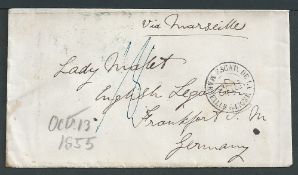 via Marseille
Lady Malet
English Legation
Frankfurt s. M
Germany
OCT. 13
1855